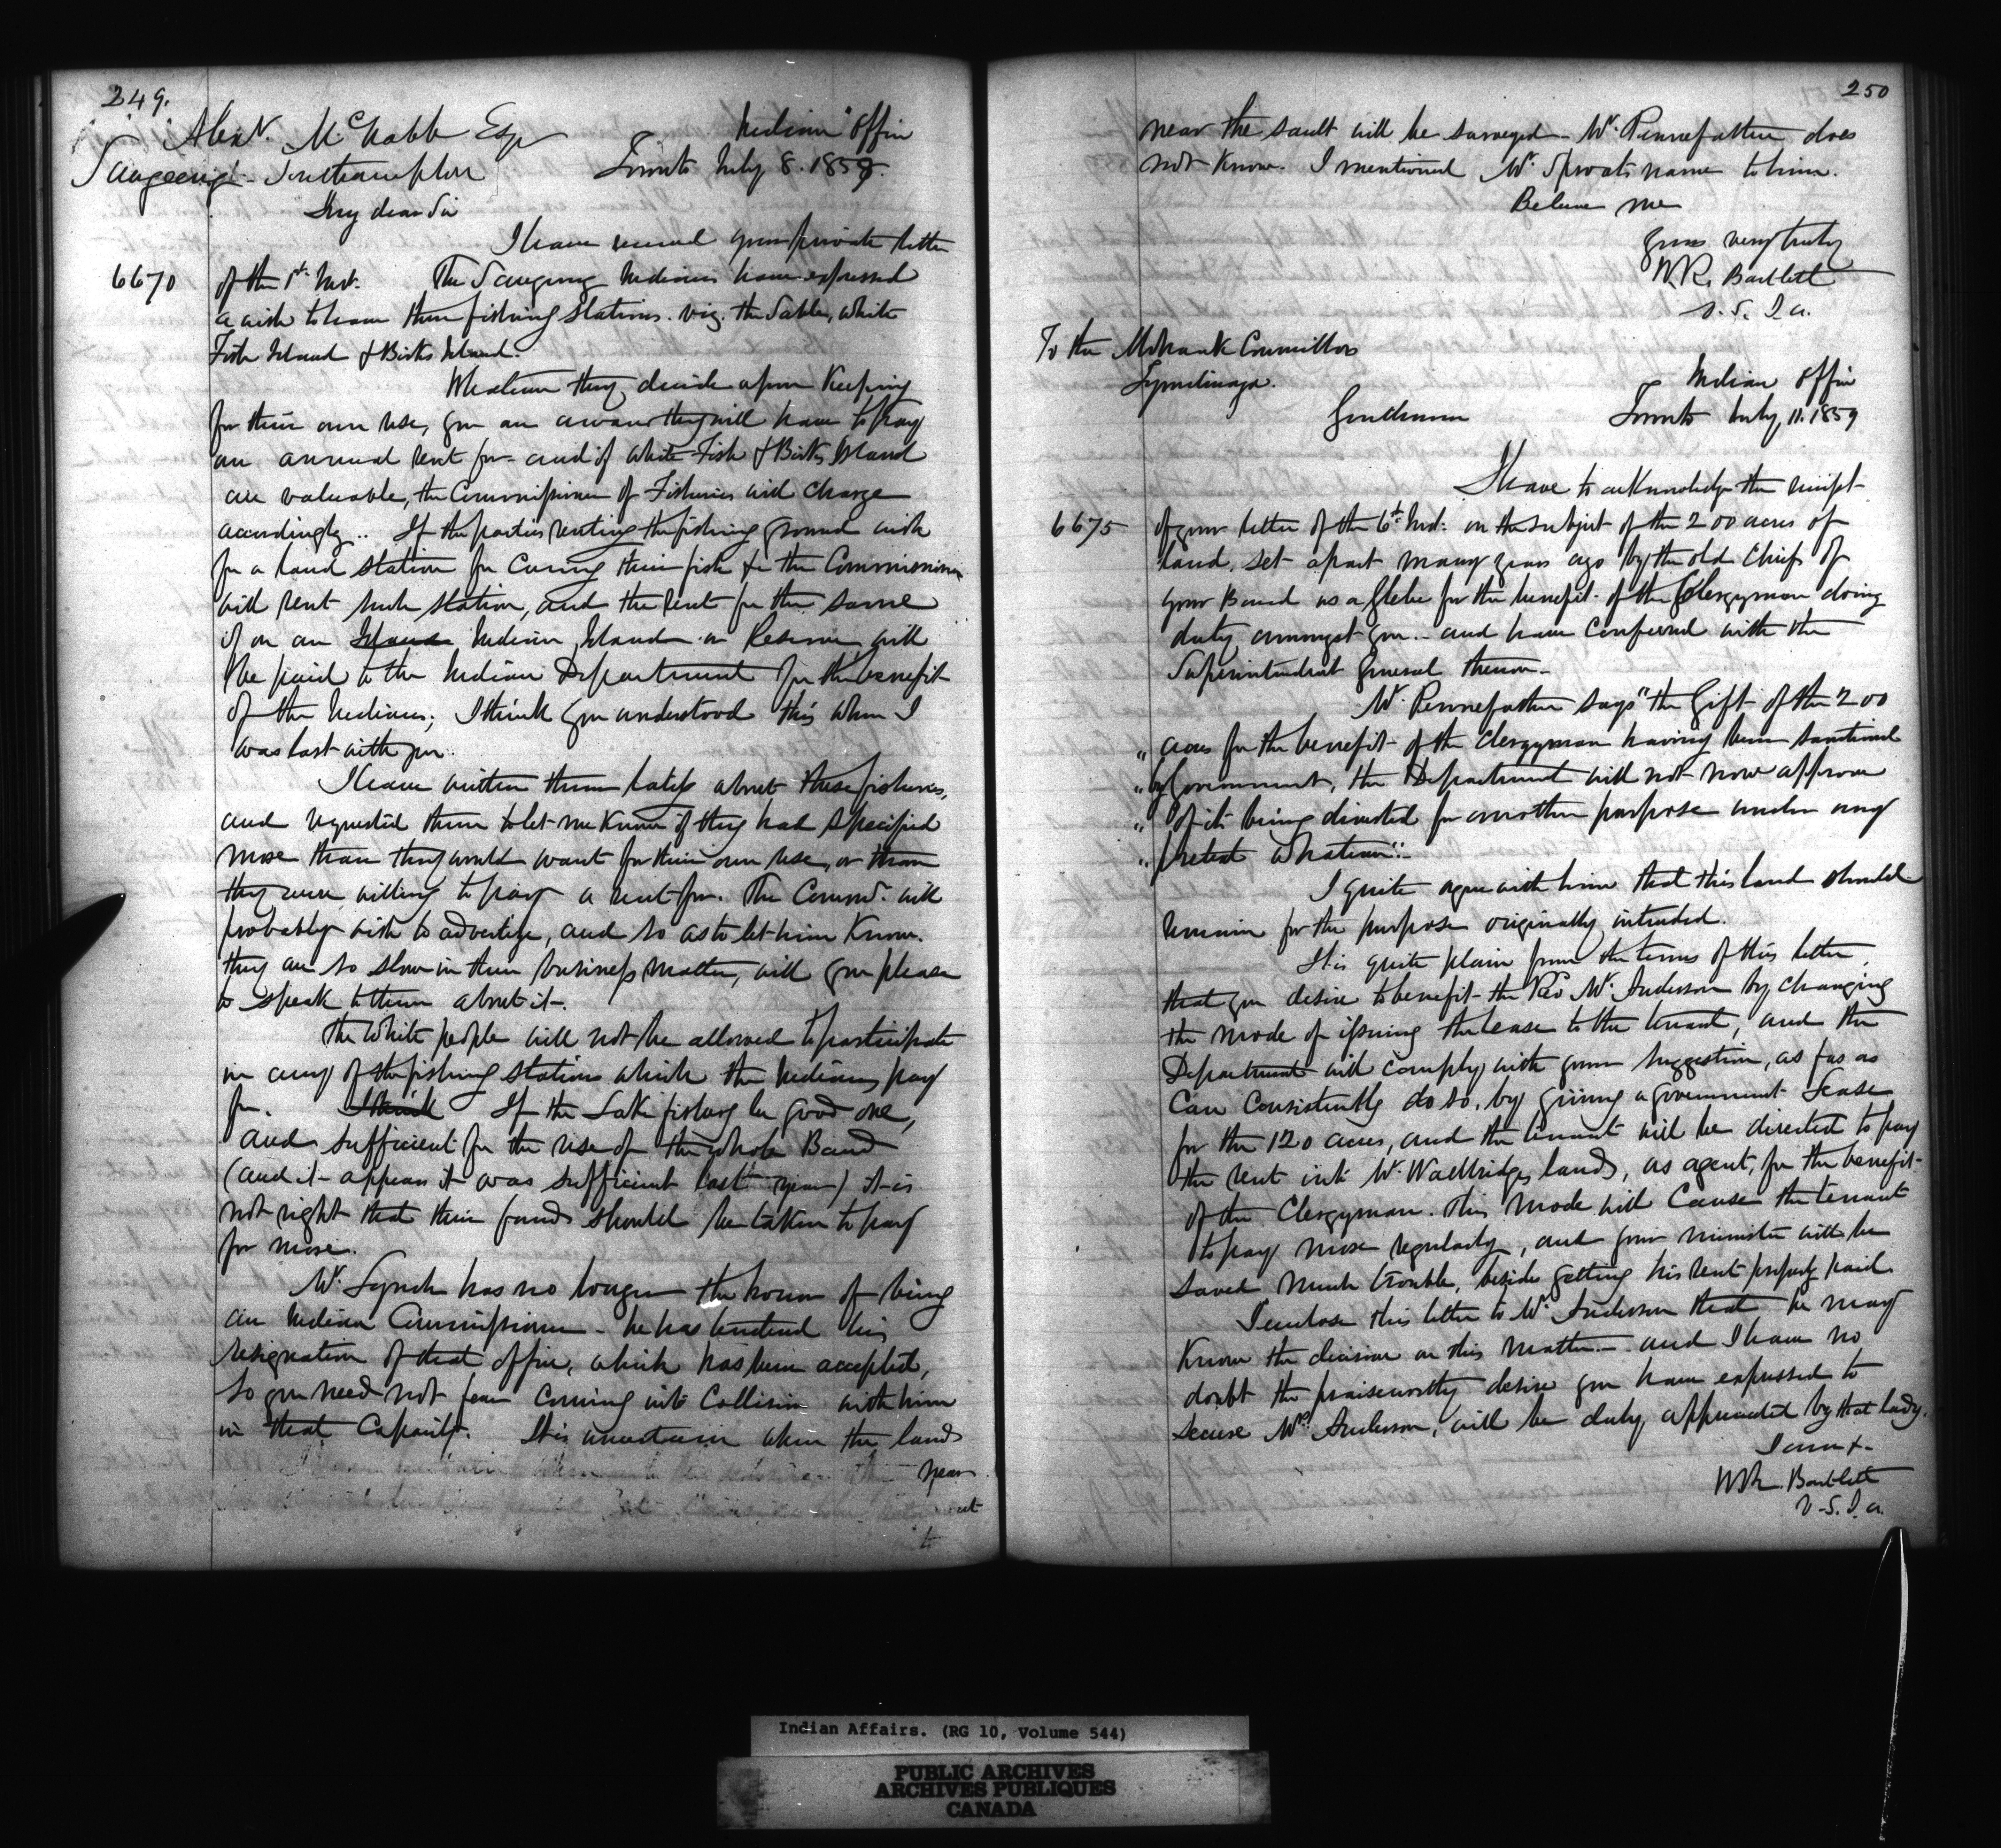 249.
Alexr. McNabb Esq
Indian Office
Saugeeng - Southampton
Toronto July 8. 1859.
My dear Sir
I have received your private letter
6670
of the 1st Inst. The Saugeeng Indians have expressed
a wish to have three fishing stations. viz. the Sable, White
Fish Island & Birks Island.
Whatever they decide upon Keeping
for their own use, you are aware they will have to pay
an annual rent for - and if White Fish & Birks Island
are valuable, the Commissioner of Fisheries will charge
accordingly.. If the parties renting the fishing ground wish
for a land station for Curing their fish &c the Commissioner
will rent such station, and the rent for the same
if on an Island Indian Island or Reserve will
be paid to the Indian Department for the benefit
of the Indians; I think you understood this when I
was last with you.
I have written them lately about these fisheries,
and requested them to let me Know if they had specified
more than they would want for their own use, or than
they were willing to pay a rent for. The Commr. will
probably wish to advertize, and so as to let him Know.
they are so slow in their business matters, will you please
to speak to them about it.
The White people will not be allowed to participate
in any of the fishing stations which the Indians pay
for. I think If the Lake fishery be good one,
and sufficient for the use of the whole Band
(and it appears it was sufficient last year) it is
not right that their funds should be taken to pay
for more.
Mr. Lynch has no longer the honor of being
an Indian Commissioner - he has tendered his
resignation of that office, which has been accepted,
so you need not fear coming into Collision with him
in that Capacity. It is uncertain when the lands
near
250
near the Sault will be surveyed - Mr. Pennefather does
not Know. I mentioned Mr. Sproats name to him.
Believe me
yours very truly
W.R. Bartlett
V. S. I. A.
To the Mohawk Councillors
Tyendinaga.
Indian Office
Gentlemen
Toronto July, 11. 1859
I have to acknowledge the receipt
6675
of your letter of the 6th Inst. on the subject of the 200 acres of
land set apart many years ago by the old Chiefs of
your Band as a Glebe for the benefit of the Clergyman doing
duty amongst you.. and have conferred with the
Superintendent General thereon -
Mr. Pennefather says "the Gift of the 200
" acres for the benefit of the Clergyman having been sanctioned
" by Government, the Department will not now approve
" of its being diverted for another purpose under any
" pretext whatever".
I quite agree with him that this land should
remain for the purpose originally intended.
It is quite plain from the terms of this letter,
that you desire to benefit the Revd Mr. Anderson by changing
the mode of issuing the Lease to the tenant, and the
Department will comply with your suggestion, as far as
Can Consistently do so, by giving a government Lease
for the 120 acres, and the tenant will be directed to pay
the rent into Mr. Wallbridges hands, as agent, for the benefit
of the Clergyman. This Mode will Cause the tenant
to pay more regularly, and your minister will be
saved much trouble, besides getting his rent properly paid
I enclose this letter to Mr Anderson that he may
Know the decision on this matter - and I have no
doubt the praiseworthy desire you have expressed to
secure Mrs. Anderson, will be duly appreciated by that lady.
I am &-
WR. Bartlett
V-S. I. A.
Indian Affairs. (RG 10, Volume 544)
PUBLIC ARCHIVES
ARCHIVES PUBLIQUES
CANADA